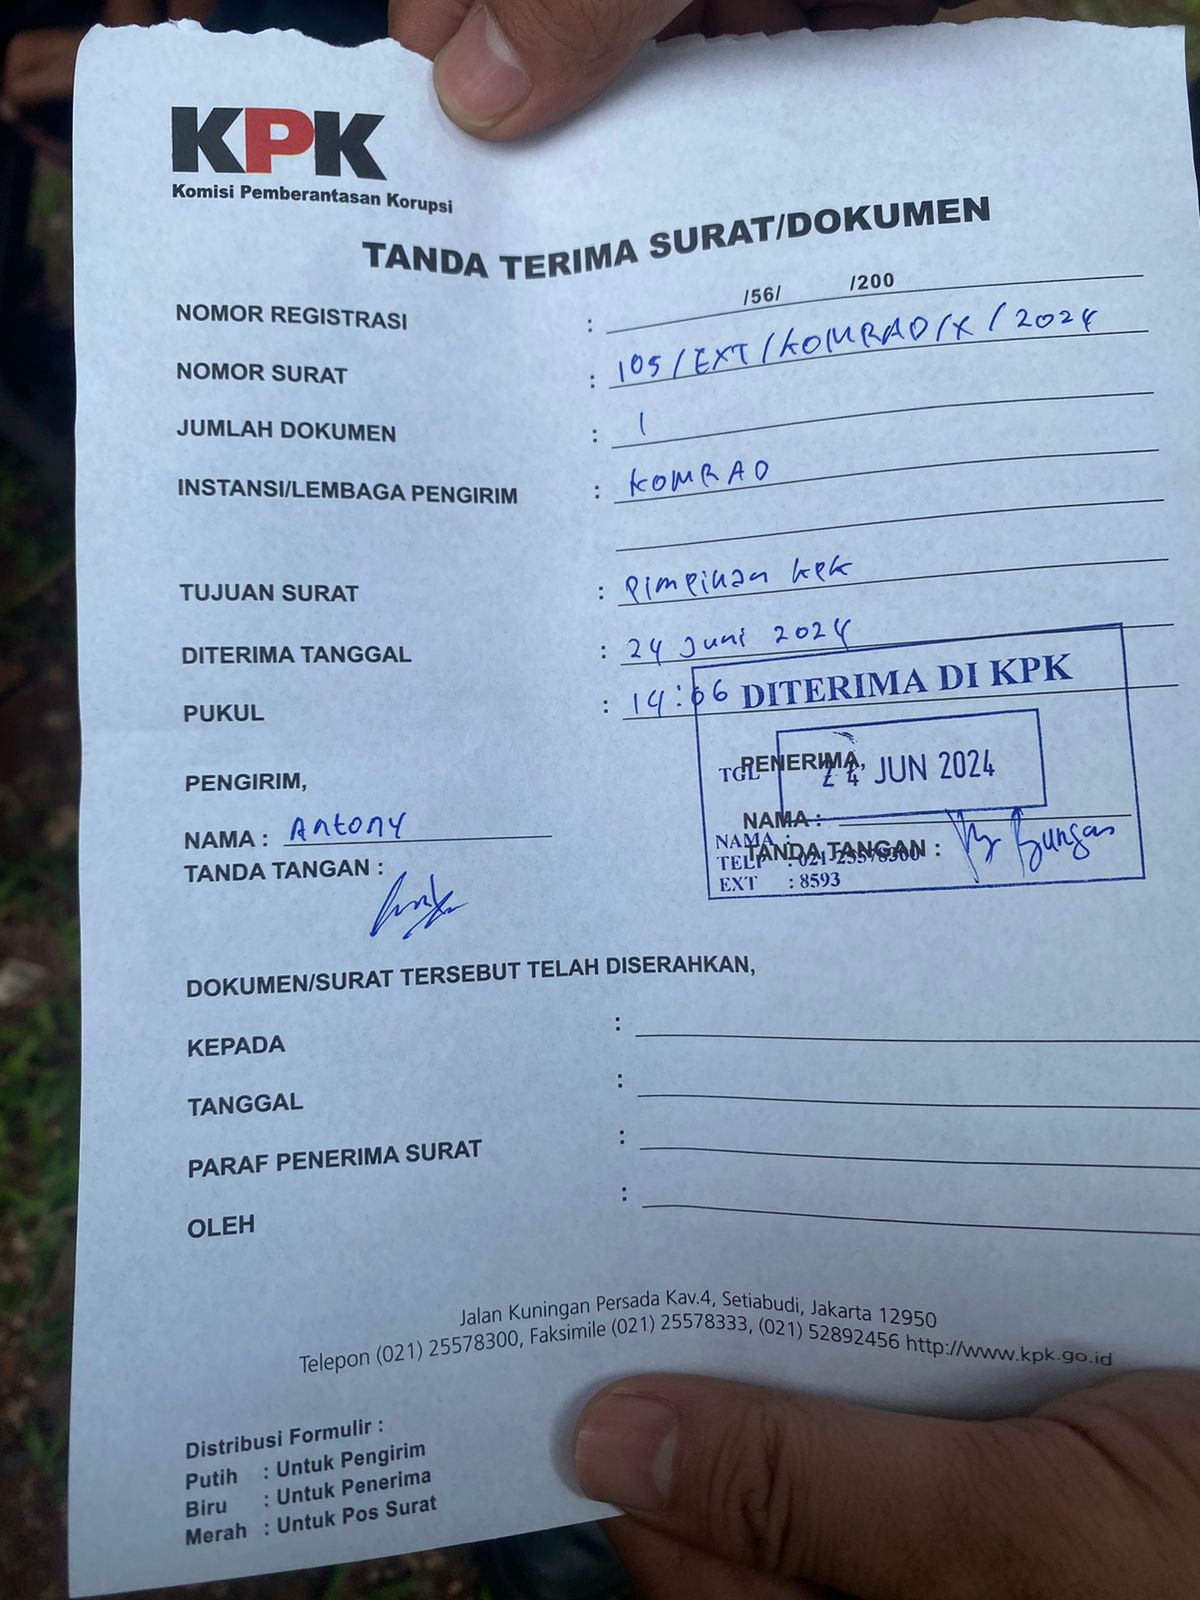 KPK
Komisi Pemberantasan Korupsi
TANDA TERIMA SURAT/DOKUMEN
NOMOR REGISTRASI : /56/ /200
NOMOR SURAT : 105/EXT/KOMRAD/X/2024
JUMLAH DOKUMEN : 1
INSTANSI/LEMBAGA PENGIRIM : KOMRAD
TUJUAN SURAT : Pimpinan KPK
DITERIMA TANGGAL : 24 Juni 2024
PUKUL : 14:06
DITERIMA DI KPK
PENGIRIM,
PENERIMA,
TGL 24 JUN 2024
NAMA : Antony
NAMA :
NAMA :
TANDA TANGAN :
TANDA TANGAN :
TELP : 021-25578300
EXT : 8593
DOKUMEN/SURAT TERSEBUT TELAH DISERAHKAN,
KEPADA :
TANGGAL :
PARAF PENERIMA SURAT :
OLEH :
Jalan Kuningan Persada Kav.4, Setiabudi, Jakarta 12950
Telepon (021) 25578300, Faksimile (021) 25578333, (021) 52892456 http://www.kpk.go.id
Distribusi Formulir :
Putih : Untuk Pengirim
Biru : Untuk Penerima
Merah : Untuk Pos Surat